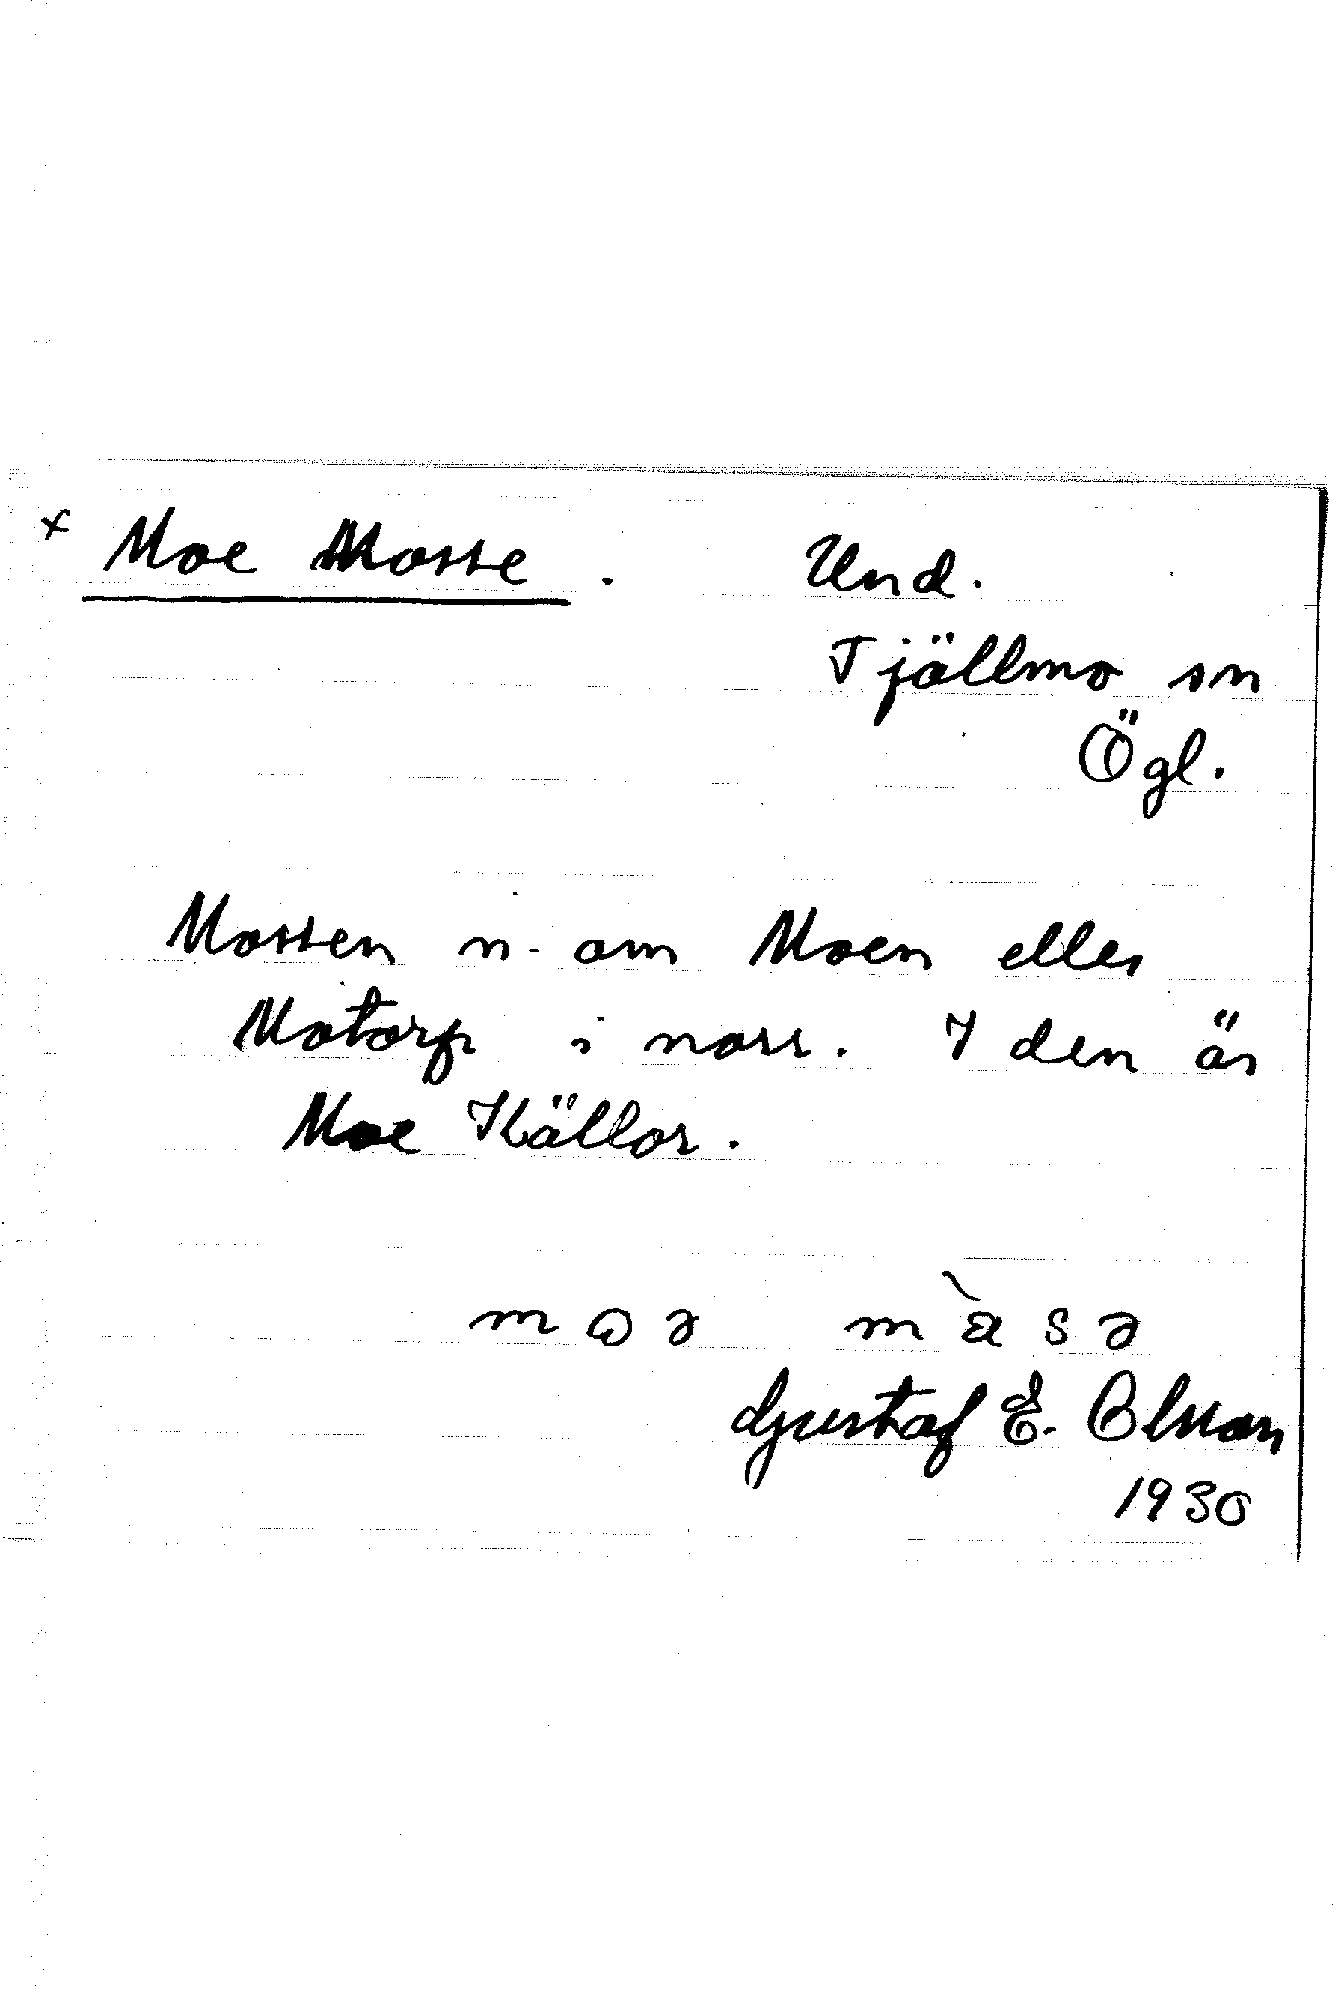 × Moe Mosse. Und.
Tjällmo sn
Ögl.
Mossen n. om Moen eller
Motorp i norr. I den är
Moe Källor.
Gustaf E. Olsson
1930